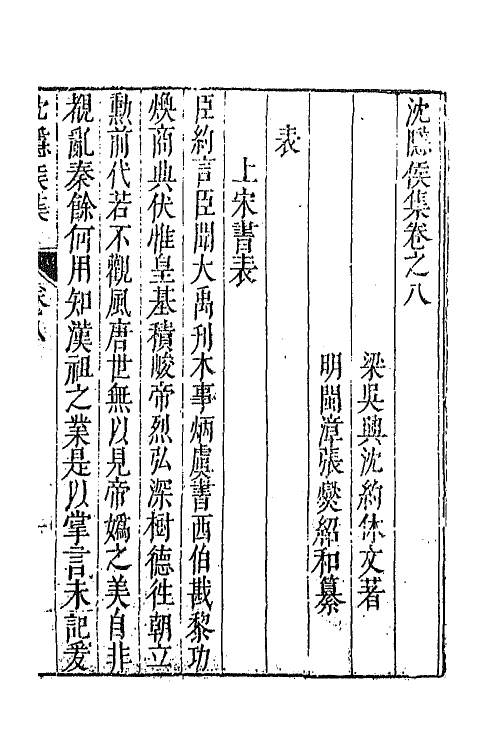 沈隱侯集卷之八
梁吳興沈約休文著
明閩漳張燮紹和纂
表
上宋書表
臣約言臣聞大禹刊木事炳虞書西伯戡黎功
煥商典伏惟皇基積峻帝烈弘深樹德往朝立
勳前代若不觀風唐世無以見帝嬀之美自非
覩亂秦餘何用知漢祖之業是以掌言未記爰
沈隱侯集
卷八